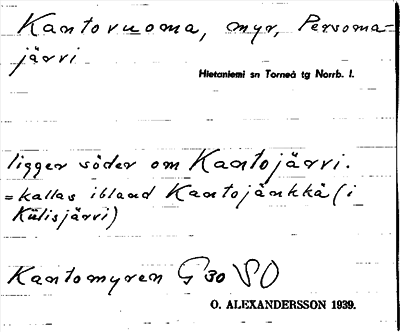 Kantovuoma, myr, Persoma=
järvi
Hietaniemi sn Torneå tg Norrb. l.
ligger söder om Kantojärvi.
= kallas ibland Kantojänkkä (i
Külisjärvi)
Kantomyren G 30 SO
O. ALEXANDERSSON 1939.